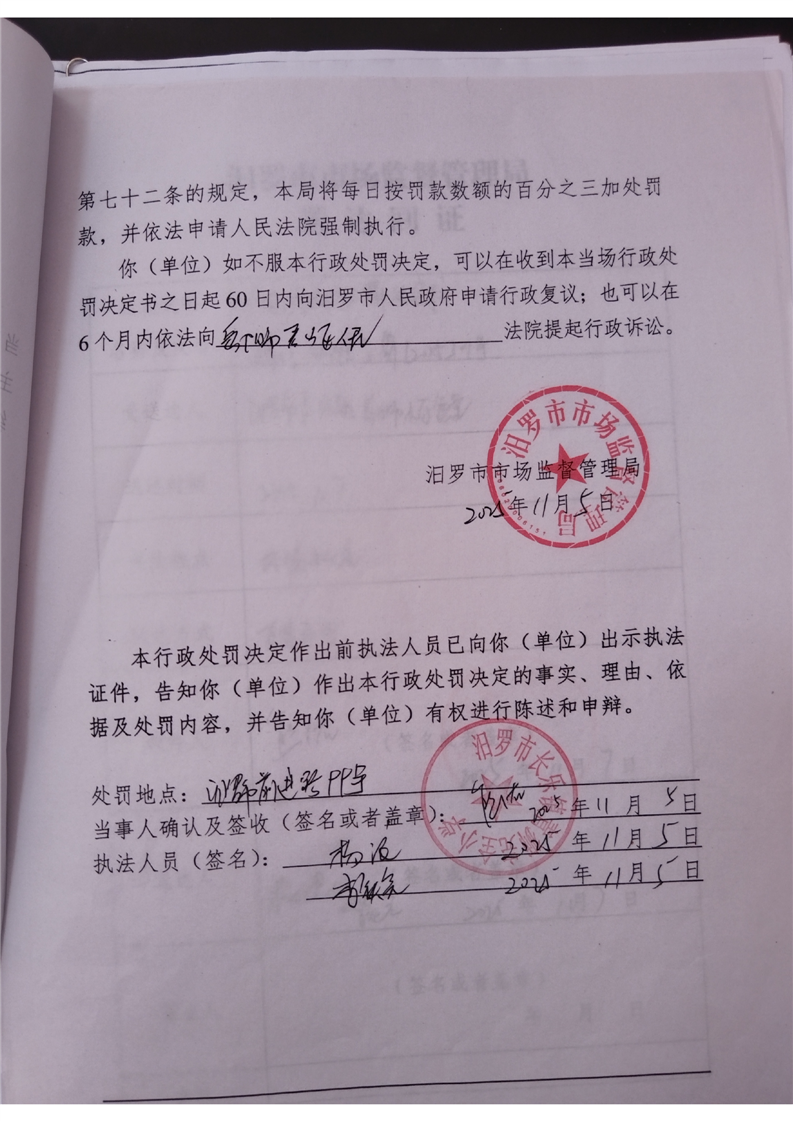 第七十二条的规定，本局将每日按罚款数额的百分之三加处罚
款，并依法申请人民法院强制执行。
你（单位）如不服本行政处罚决定，可以在收到本当场行政处
罚决定书之日起 60 日内向汨罗市人民政府申请行政复议；也可以在
6 个月内依法向 法院提起行政诉讼。
汨罗市市场监督管理局
汨罗市市场监督管理局
2025年11月5日
本行政处罚决定作出前执法人员已向你（单位）出示执法
证件，告知你（单位）作出本行政处罚决定的事实、理由、依
据及处罚内容，并告知你（单位）有权进行陈述和申辩。
汨罗市长乐
处罚地点：
当事人确认及签收（签名或者盖章）： 2025年11月5日
执法人员（签名）： 2025年11月5日
2025年11月5日